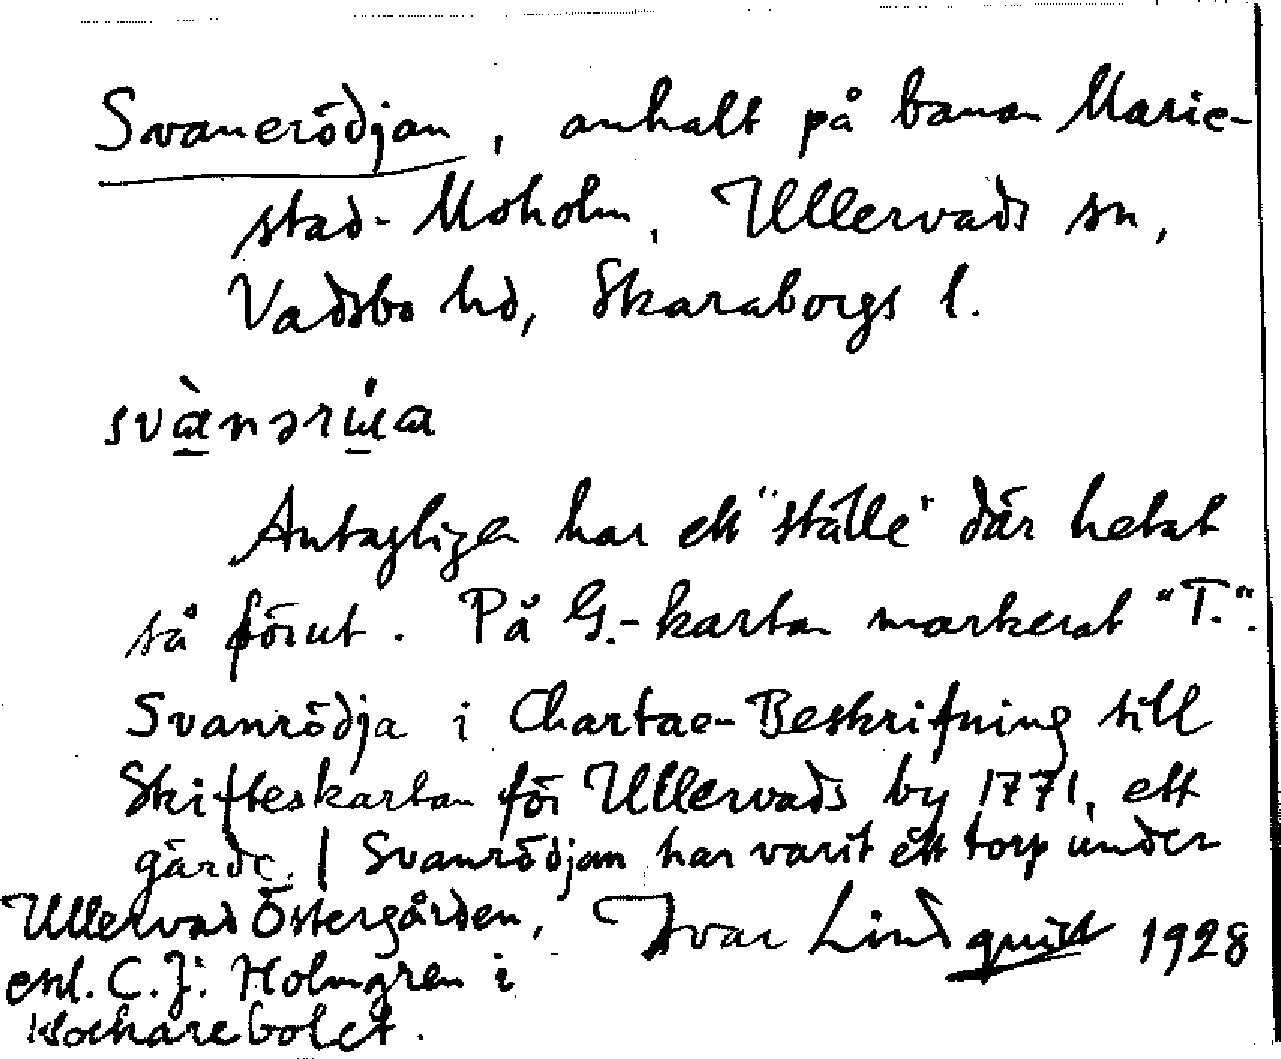 Svanerödjan, anhalt på banan Marie-
stad-Moholm, Ullervads sn,
Vadsbo hd, Skaraborgs l.
svànərɯ́a
Antagligen har ett "ställe" där hetat
så förut. På G.-kartan markerat "T.".
Svanrödja i Chartae-Beskrifning till
Skifteskartan för Ullervads by 1771, ett
gärde. | Svanrödjan har varit ett torp under
Ullervad Östergården, Ivar Lindquist 1928
enl. C.J. Holmgren i
Klockarebolet.